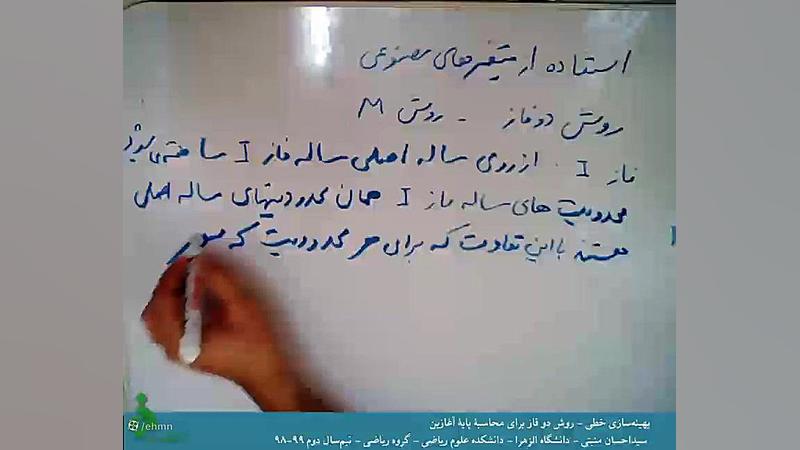 استفاده از متغیرهای مصنوعی
روش دوفاز - روش M
فاز I . از روی مساله اصلی مساله فاز I ساخته می‌شود
محدودیت های مساله فاز I همان محدودیتهای مساله اصلی
هستند با این تفاوت که برای هر محدودیت که
/ehmn
بهینه‌سازی خطی - روش دو فاز برای محاسبهٔ پایهٔ آغازین
سیداحسان منبتی - دانشگاه الزهرا - دانشکده علوم ریاضی - گروه ریاضی - نیم‌سال دوم ۹۹-۹۸